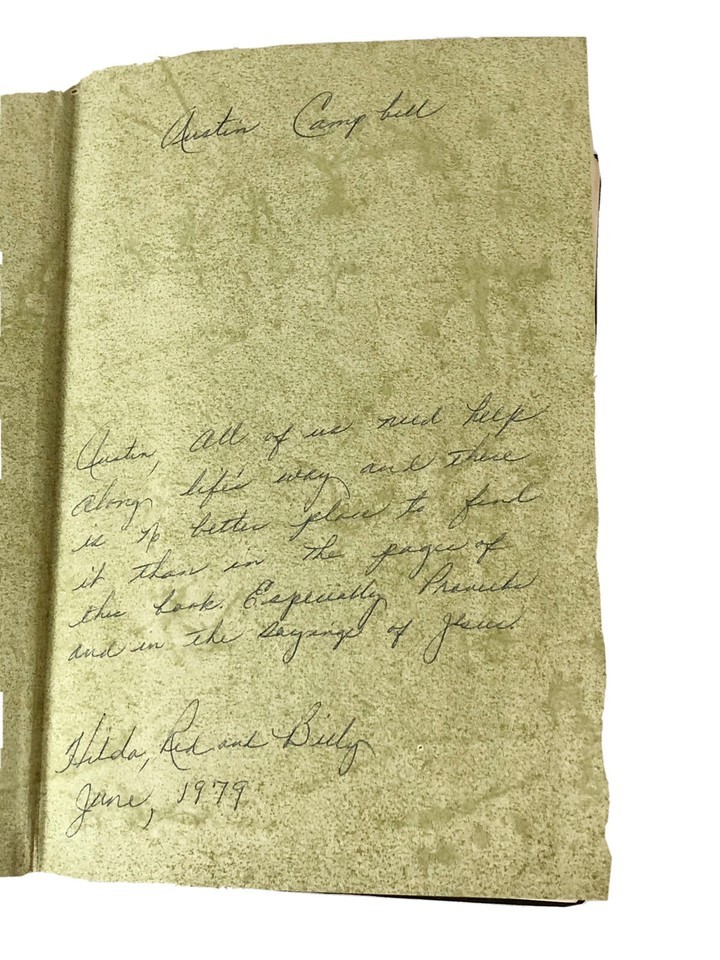 Austin Campbell
Austin, All of us need help
along life's way and there
is no better place to find
it than in the pages of
this book. Especially Proverbs
and in the sayings of Jesus.
Hilda, and Billy
June, 1979